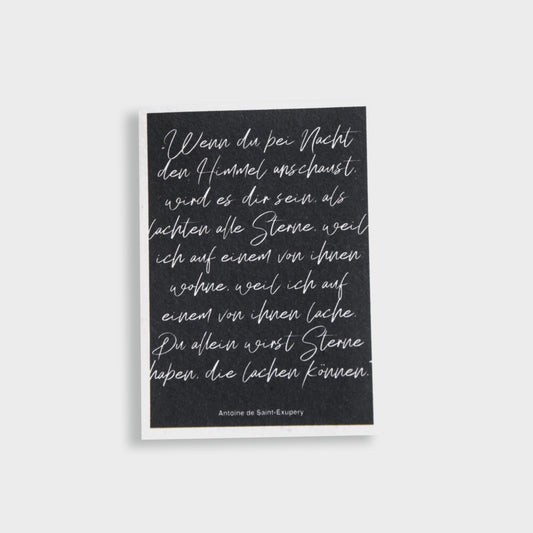 „Wenn du bei Nacht
den Himmel anschaust,
wird es dir sein, als
lachten alle Sterne, weil
ich auf einem von ihnen
wohne, weil ich auf
einem von ihnen lache.
Du allein wirst Sterne
haben, die lachen können.“
Antoine de Saint-Exupery